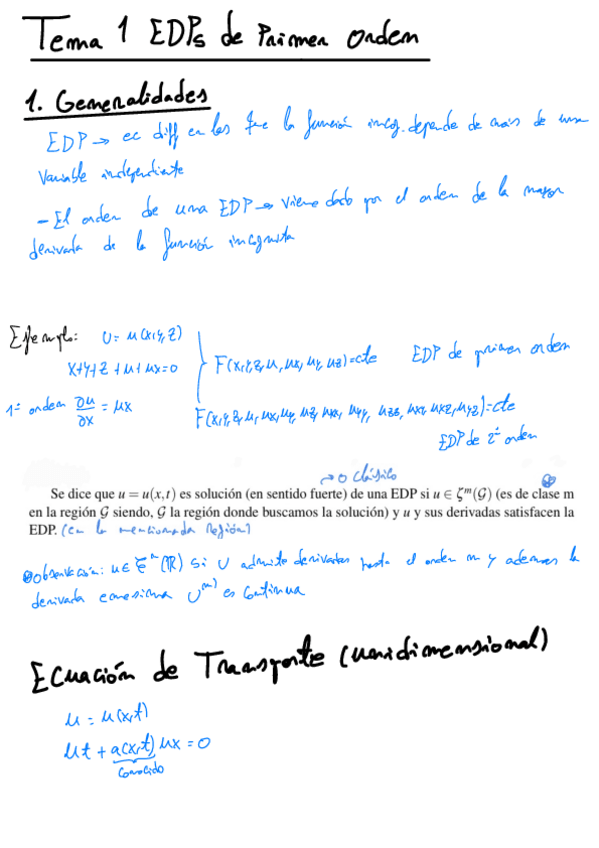 Tema 1 EDPs de Primer orden
1. Generalidades
EDP → ec diff en las que la función incog. depende de más de una
variable independiente
- El orden de una EDP → viene dado por el orden de la mayor
derivada de la función incognita
Ejemplo: U = u(x,y,z)
x+y+z+u+ux=0
F(x,y,z,u,ux,uy,uz)=cte
EDP de primer orden
1º orden ∂u/∂x = ux
F(x,y,z,u,ux,uy,uz,uxx,uyy,uzz,uxy,uxz,uyz)=cte
EDP de 2º orden
→ o clásico
Se dice que u = u(x,t) es solución (en sentido fuerte) de una EDP si u ∈ ζᵐ(G) (es de clase m
en la región G siendo, G la región donde buscamos la solución) y u y sus derivadas satisfacen la
EDP. (en la mencionada región)
observación: u ∈ ξⁿ(ℝ) si U admite derivadas hasta el orden n y ademas la
derivada enesima U⁽ⁿ⁾ es continua
Ecuación de Transporte (unidimensional)
u = u(x,t)
ut + a(x,t) ux = 0
conocido